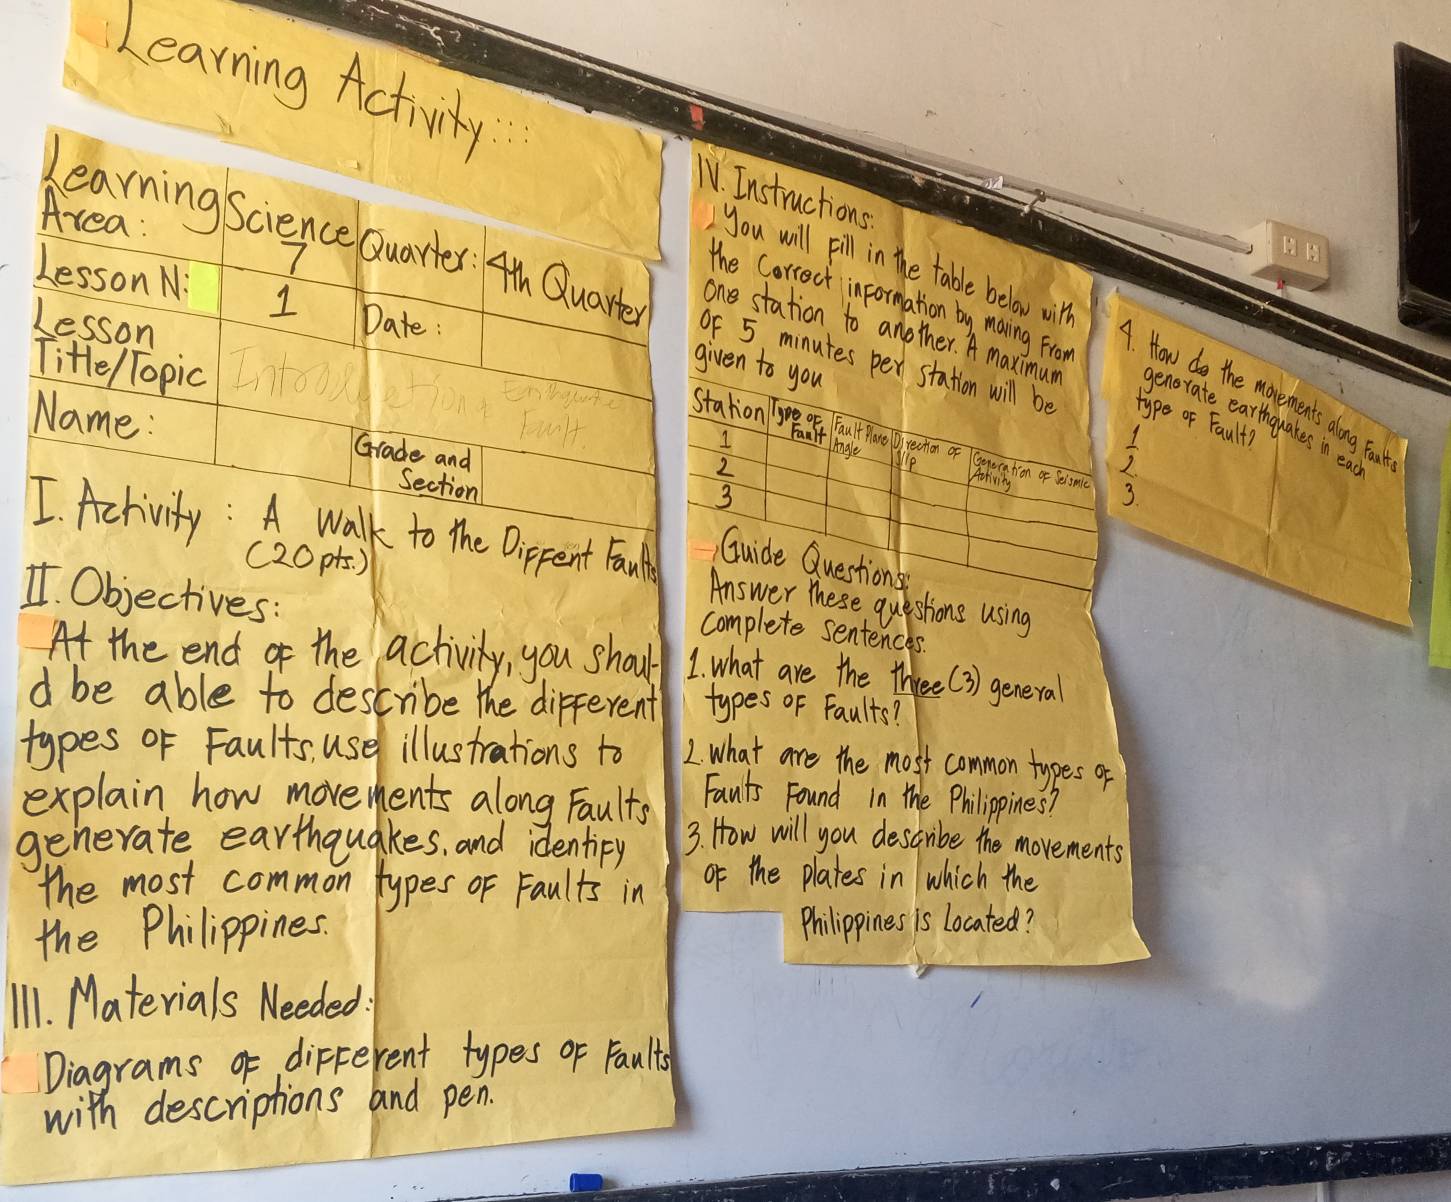 Learning Activity:::
Learning Area: Science 7 Quarter: 4th Quarter
Lesson N: 1 Date:
Lesson Title/Topic Introduction Earthquake Fault
Name: Grade and Section
I. Activity : A Walk to the Diffent Faults
(20 pts.)
II. Objectives:
At the end of the activity, you shoul-
d be able to describe the different
types of Faults, use illustrations to
explain how movements along Faults
generate earthquakes, and identify
the most common types of Faults in
the Philippines.
III. Materials Needed:
Diagrams of different types of Faults
with descriptions and pen.
IV. Instructions:
You will fill in the table below with
the correct information by moving From
one station to another. A maximum
of 5 minutes per station will be
given to you
Station Type of Fault Fault Plane Angle Direction of Slip Generation of Seismic Activity
1
2
3
Guide Questions:
Answer these questions using
complete sentences.
1. What are the three (3) general
types of Faults?
2. What are the most common types of
Faults Found in the Philippines?
3. How will you describe the movements
of the plates in which the
Philippines is Located?
4. How do the movements along Faults
generate earthquakes in each
type of Fault?
1.
2.
3.